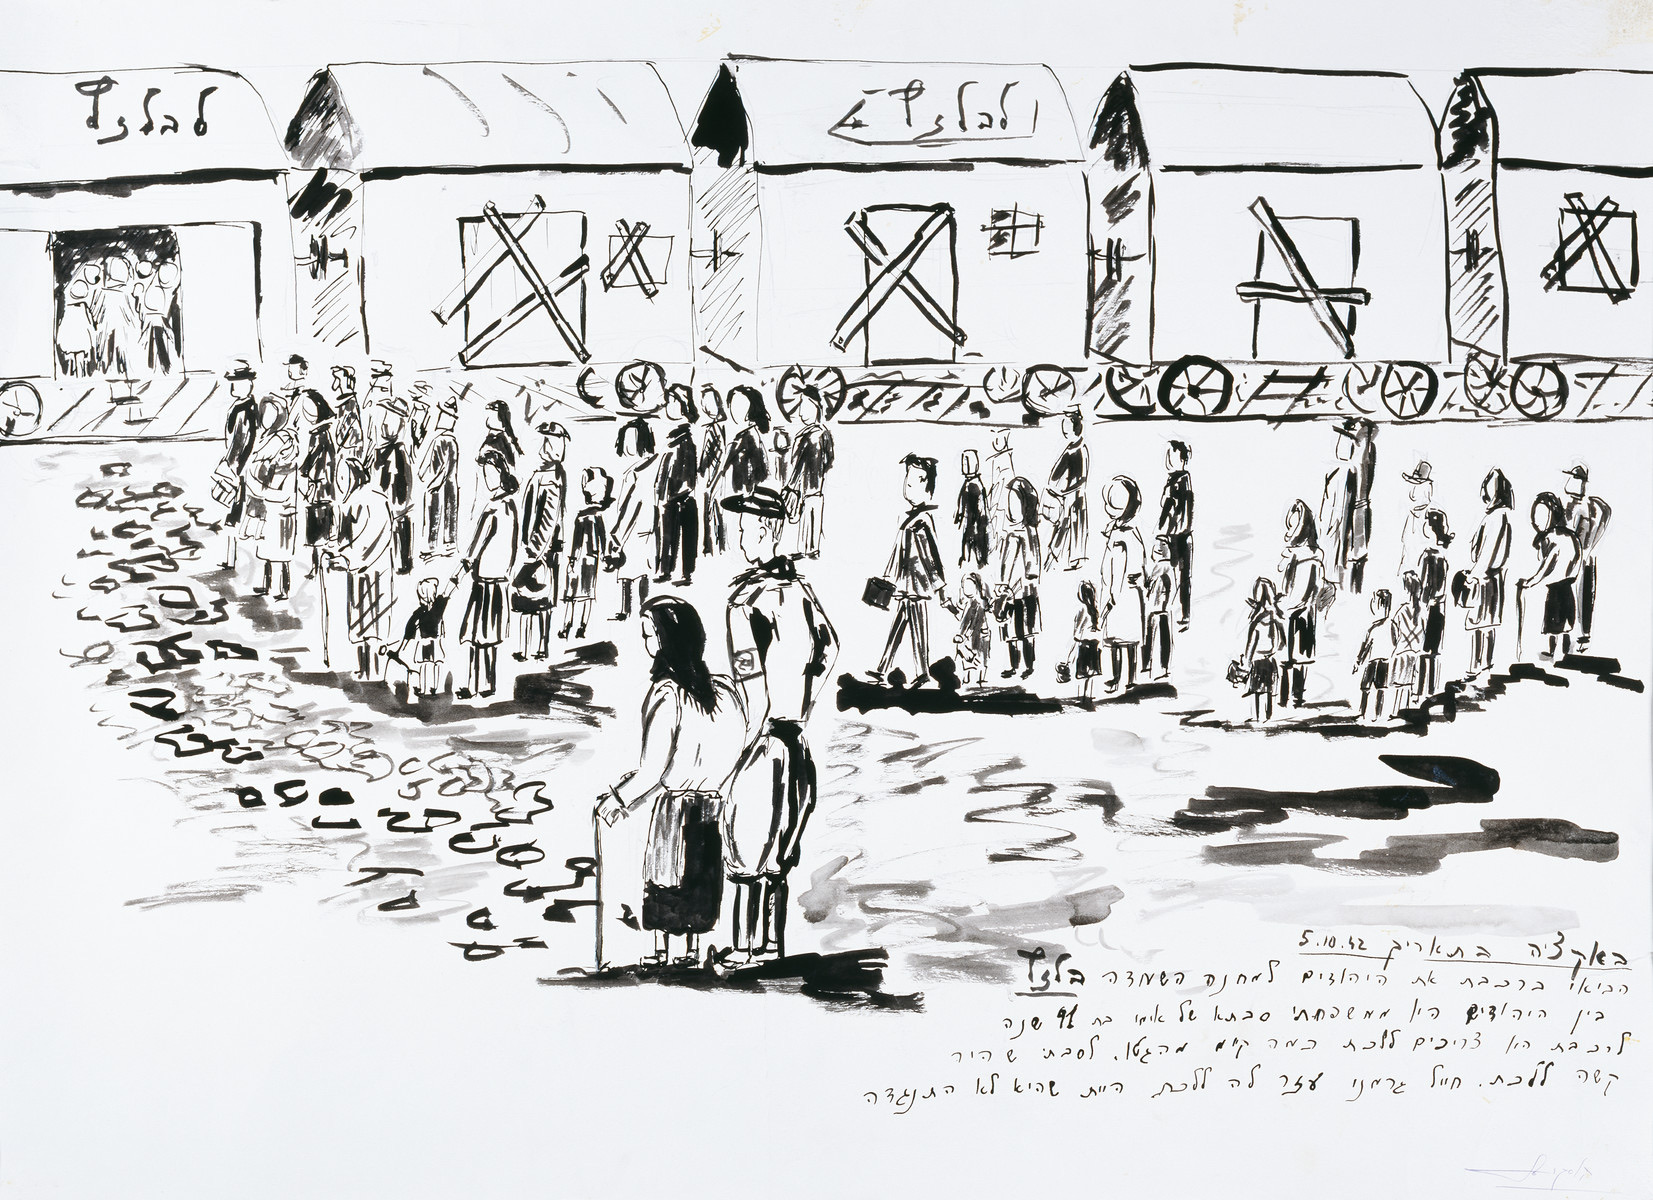 לבלזץ
לבלזץ
באקציה בתאריך 5.10.42
הביאו ברכבת את היהודים למחנה השמדה בלזץ
בין היהודים היו ממשפחתי סבתא של אימי בת 91 שנה
לרכבת היו צריכים ללכת כמה ק"מ מהגטו. לסבתי שהיה
קשה ללכת. חייל גרמני עזר לה ללכת, היות שהיא לא התנגדה